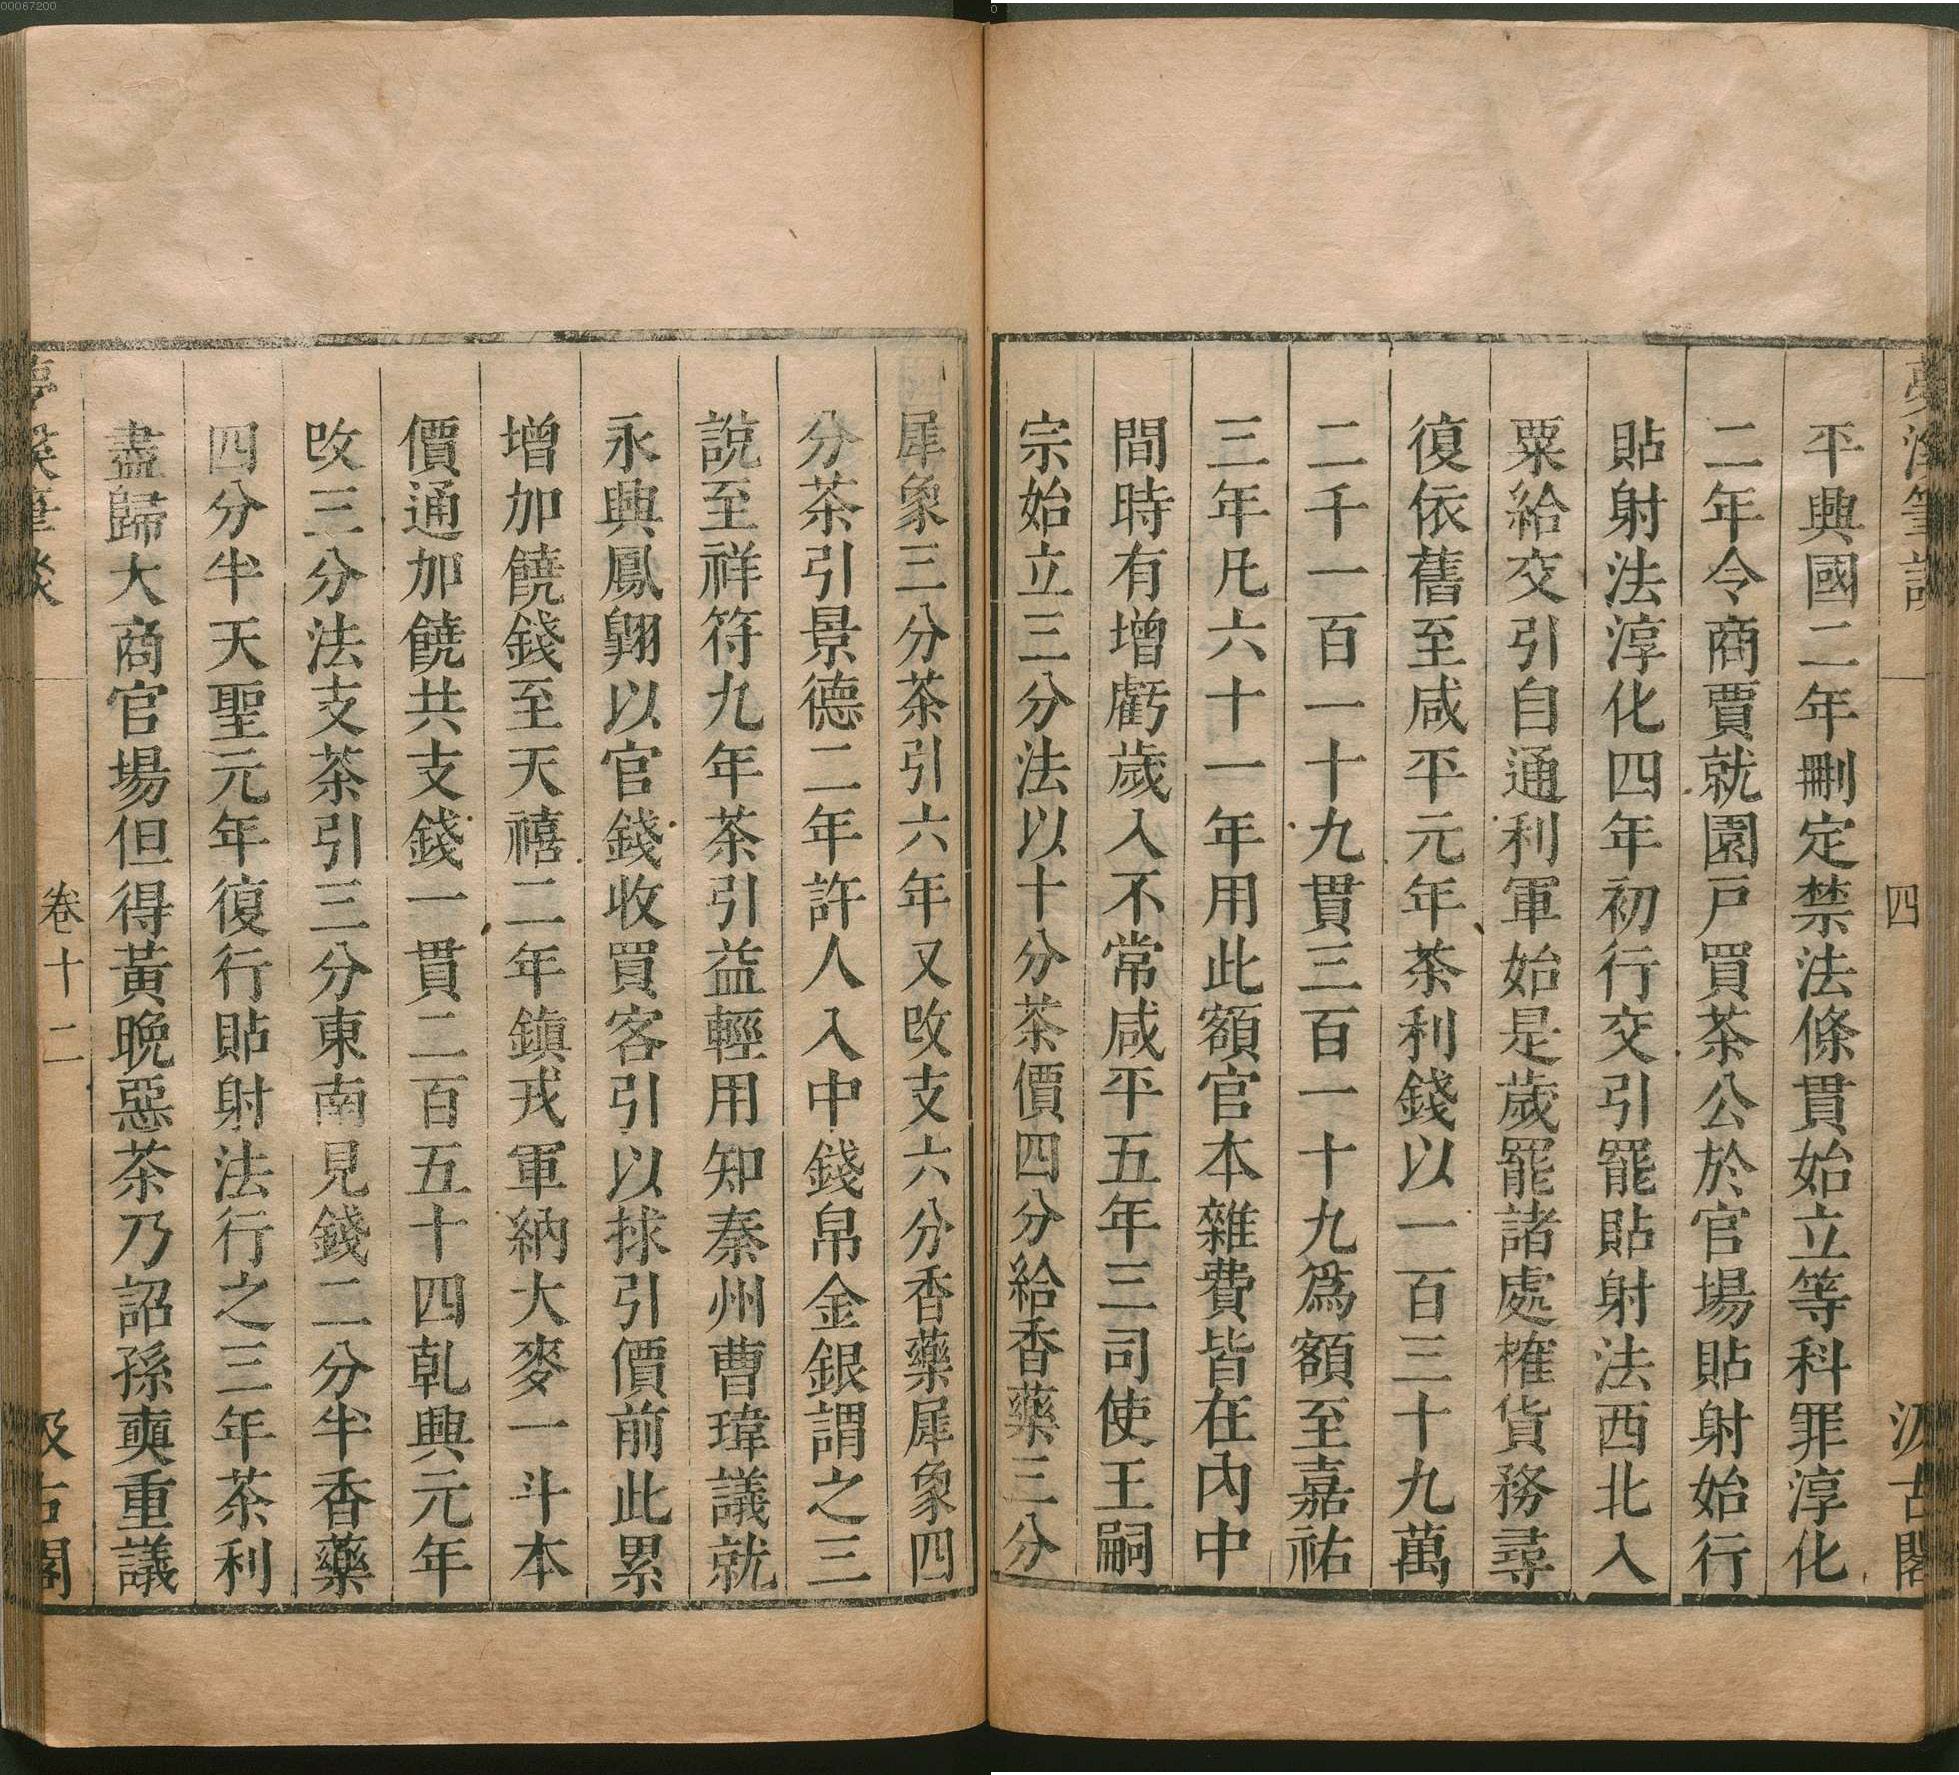 00067200
夢溪筆談
四
汲古閣
平興國二年刪定禁法條貫始立等科罪淳化
二年令商賈就園戸買茶公於官場貼射始行
貼射法淳化四年初行交引罷貼射法西北入
粟給交引自通利軍始是歲罷諸處榷貨務尋
復依舊至咸平元年茶利錢以一百三十九萬
二千一百一十九貫三百一十九爲額至嘉祐
三年凡六十一年用此額官本雜費皆在內中
間時有增虧歲入不常咸平五年三司使王嗣
宗始立三分法以十分茶價四分給香藥三分
犀象三分茶引六年又攺支六分香藥犀象四
分茶引景德二年許人入中錢帛金銀謂之三
說至祥符九年茶引益輕用知秦州曹瑋議就
永興鳳翔以官錢收買客引以捄引價前此累
增加饒錢至天禧二年鎮戎軍納大麥一斗本
價通加饒共支錢一貫二百五十四乹興元年
攺三分法支茶引三分東南見錢二分半香藥
四分半天聖元年復行貼射法行之三年茶利
盡歸大商官場但得黃晚惡茶乃詔孫奭重議
夢溪筆談
卷十二
汲古閣